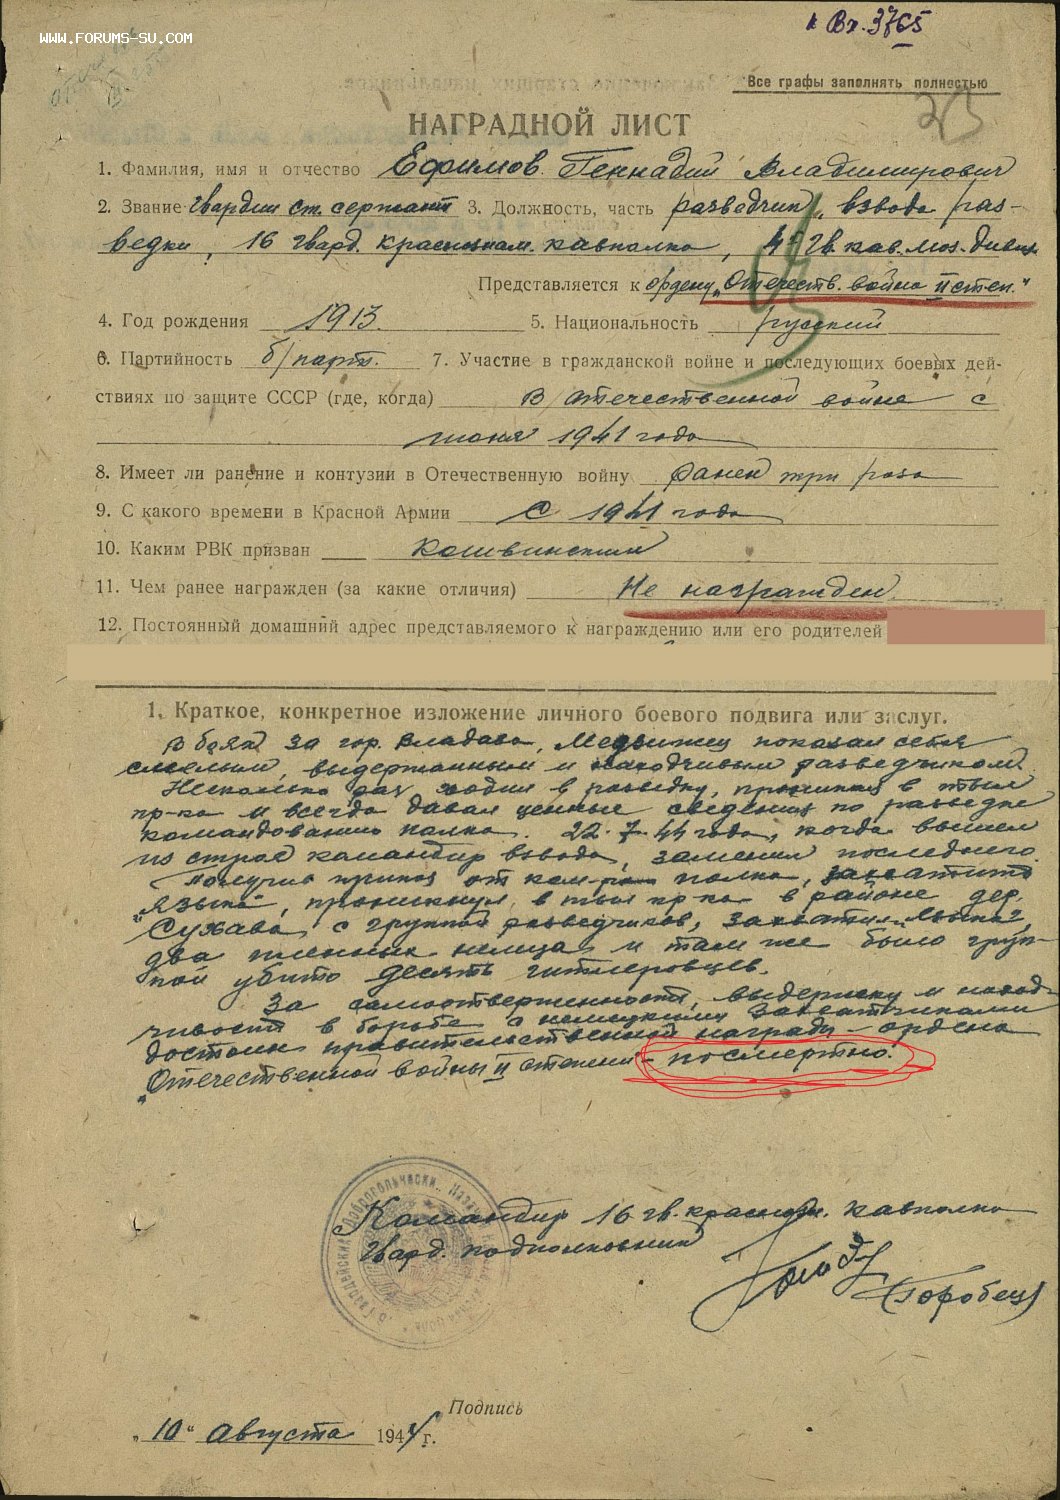 к Вх. 3765
WWW.FORUMS-SU.COM
Все графы заполнять полностью
НАГРАДНОЙ ЛИСТ
1. Фамилия, имя и отчество Ефимов Геннадий Владимирович
2. Звание Гвардии ст. сержант 3. Должность, часть разведчик взвода раз-
ведки, 16 гвард. краснознам. кавполка, 4 Гв. кав.
Представляется к ордену „Отечеств. война II степ."
4. Год рождения 1913. 5. Национальность русский
6. Партийность б/парт. 7. Участие в гражданской войне и последующих боевых дей-
ствиях по защите СССР (где, когда) В отечественной войне с
июня 1941 года
8. Имеет ли ранение и контузии в Отечественную войну Ранен три раза
9. С какого времени в Красной Армии С 1941 года
10. Каким РВК призван Кошвинским
11. Чем ранее награжден (за какие отличия) Не награжден.
12. Постоянный домашний адрес представляемого к награждению или его родителей
1. Краткое, конкретное изложение личного боевого подвига или заслуг.
В боях за гор. Владава, показал себя
смелым, выдержанным и находчивым разведчиком.
Несколько раз ходил в разведку, проникал в тыл
пр-ка и всегда давал ценные сведения по разведке
командованию полка. 22.7.44 года, когда вышел
из строя командир взвода, заменил последнего.
Получив приказ от ком- полка, захватить
„языка", проникнул в тыл пр-ка в районе дер.
Сухава, с группой разведчиков, захватил
два пленных немца и там же было груп-
пой убито десять гитлеровцев.
За самоотверженность, выдержку и наход-
чивость в борьбе с немецкими захватчиками
достоин правительственной награды – ордена
„Отечественной войны II степени" – посмертно.
Командир 16 гв. краснозн. кавполка
Гвард. подполковник
(Горобец)
Подпись
„10" августа 1944 г.